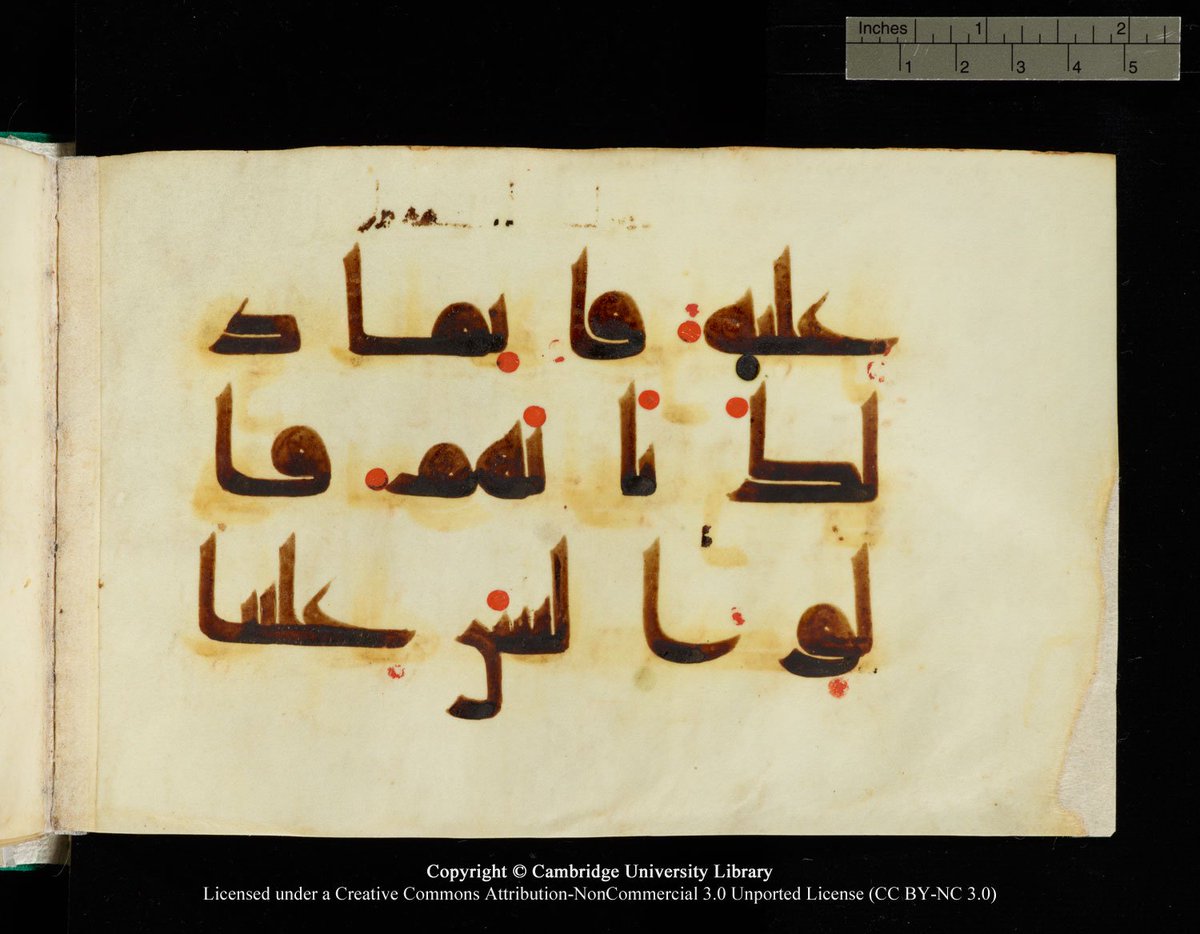 Inches 1 2
1 2 3 4 5
عليه قا يما ذ
لك با نهم قا
لو ا ليس علينا
Copyright © Cambridge University Library
Licensed under a Creative Commons Attribution-NonCommercial 3.0 Unported License (CC BY-NC 3.0)